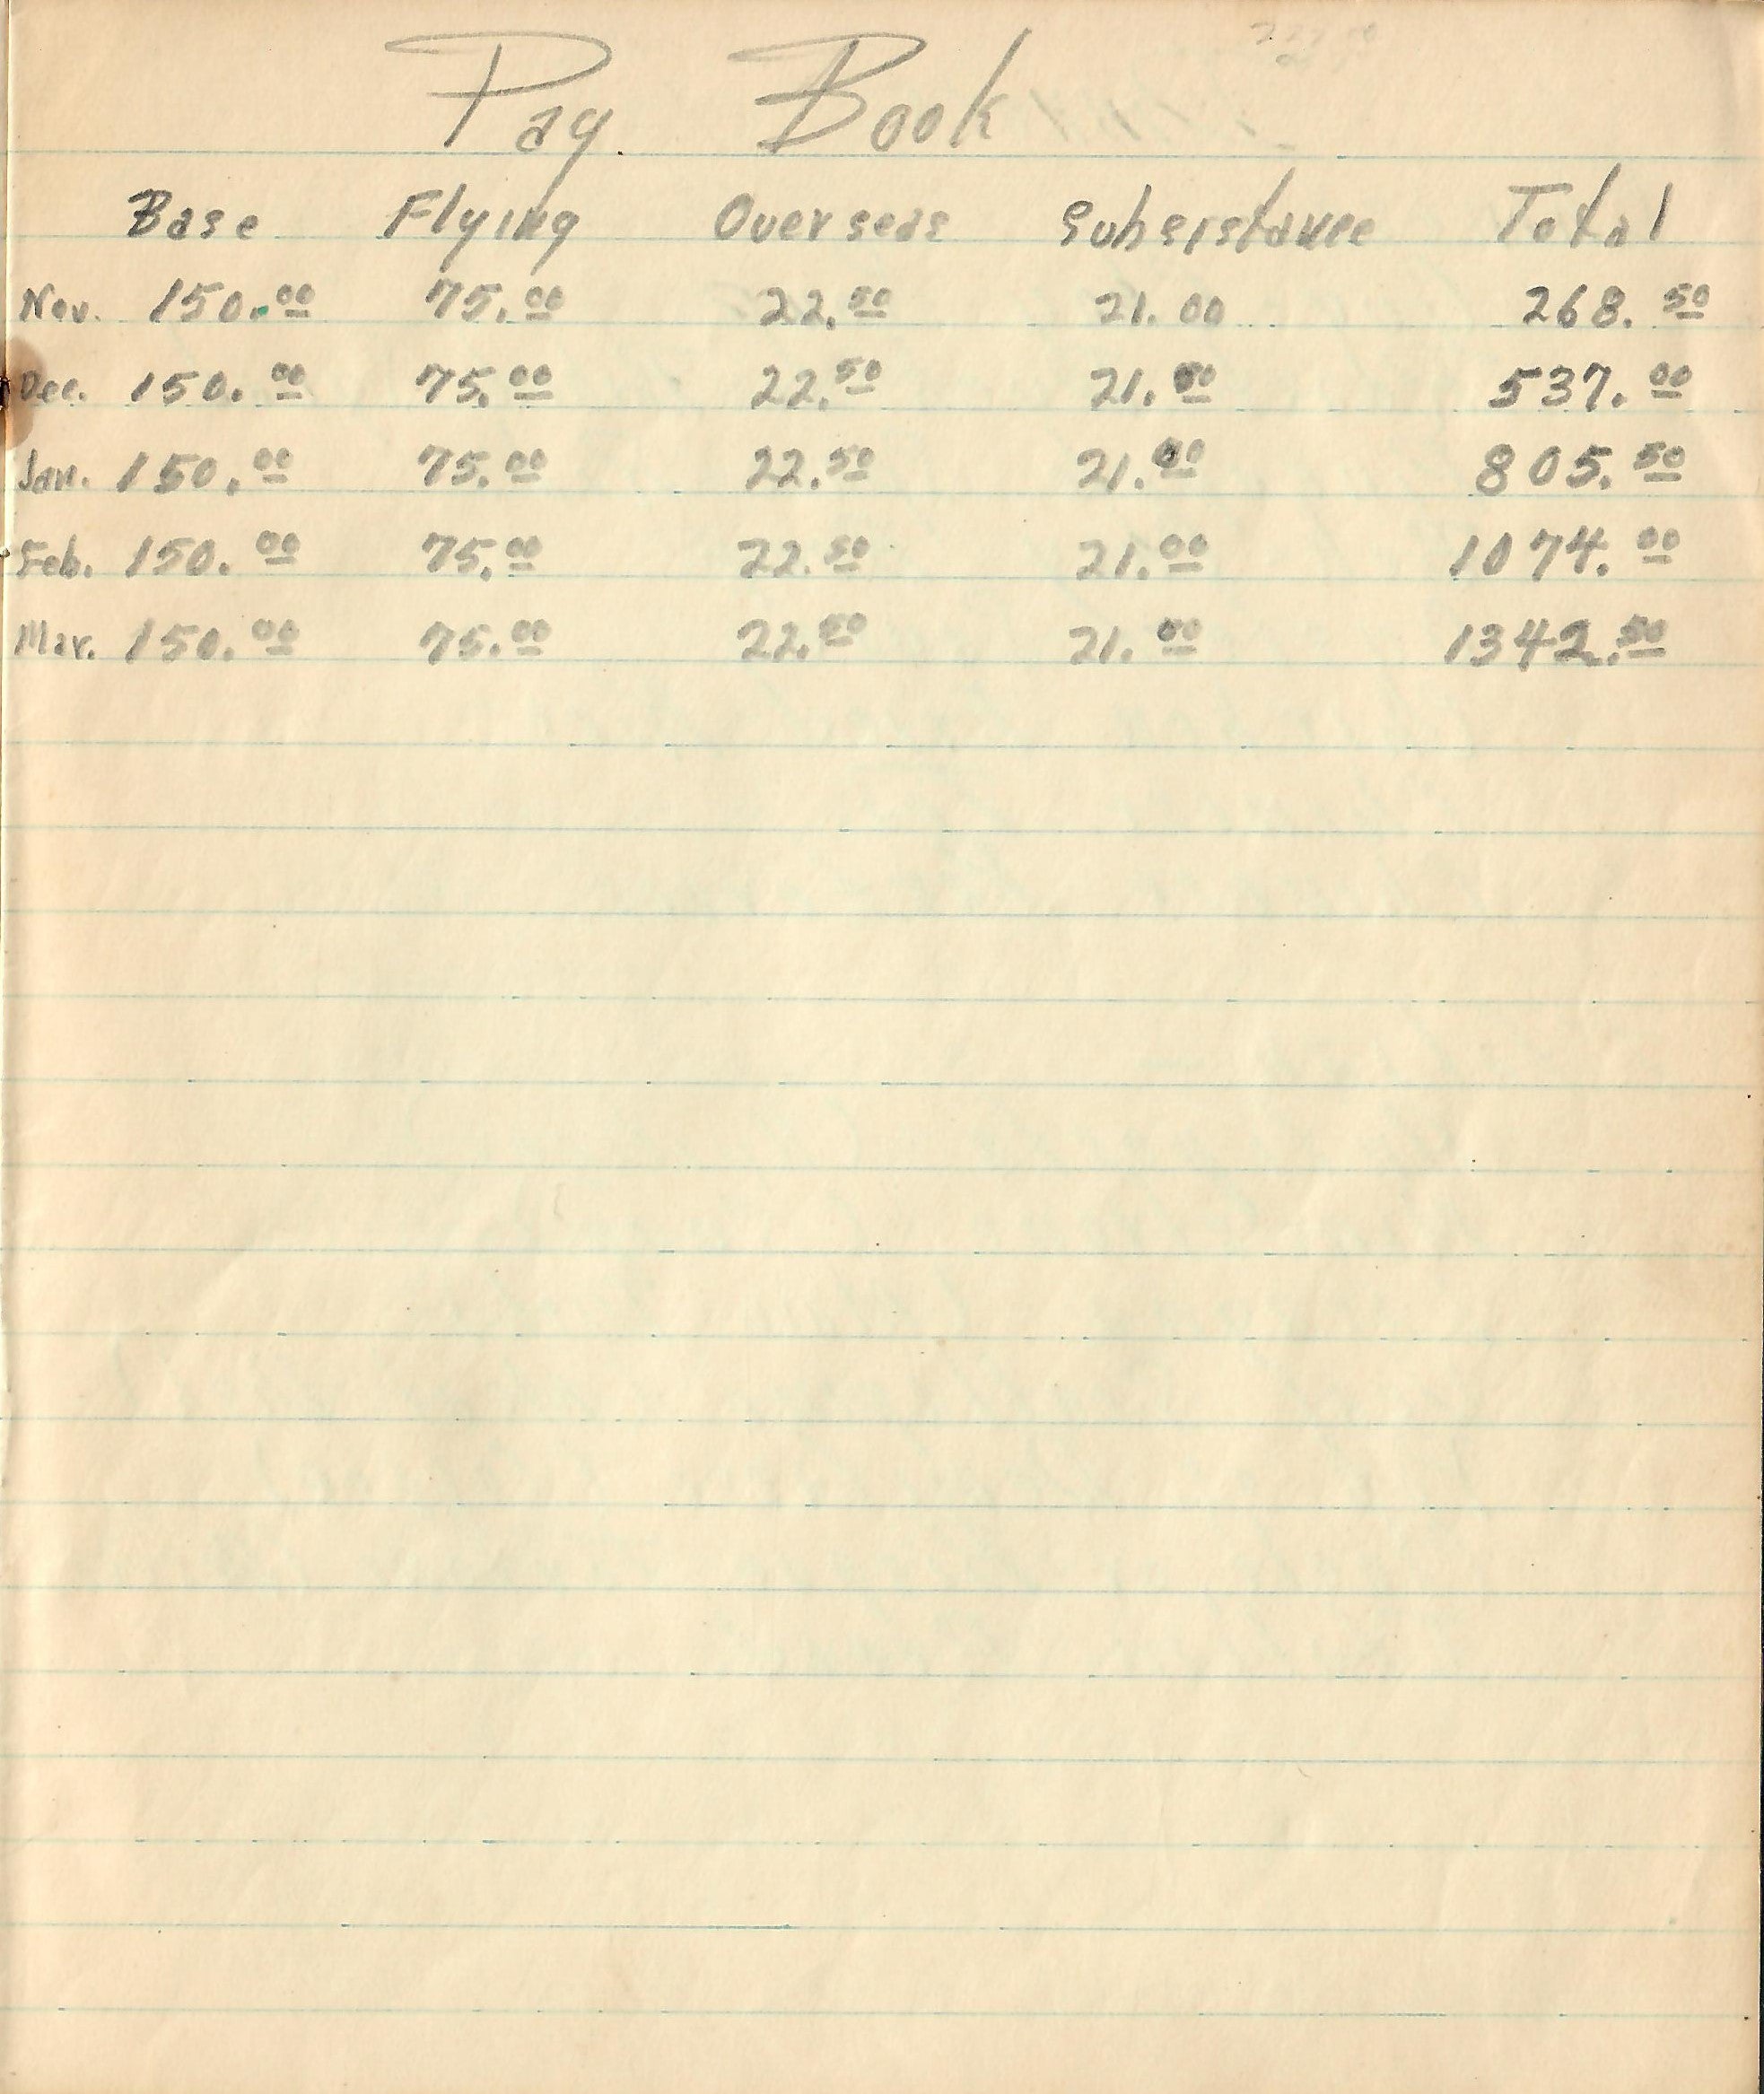 Pay Book
Base Flying Overseas Subsistance Total
Nov. 150.00 75.00 22.50 21.00 268.50
Dec. 150.00 75.00 22.50 21.00 537.00
Jan. 150.00 75.00 22.50 21.00 805.50
Feb. 150.00 75.00 22.50 21.00 1074.00
Mar. 150.00 75.00 22.50 21.00 1342.50